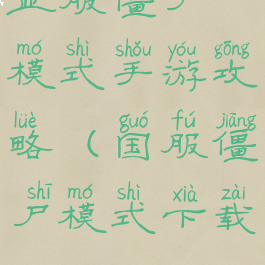 服僵）
mó shì shǒu yóu gōng
模式手游攻
lüè guó fú jiāng
略（国服僵
shī mó shì xià zài
尸模式下载